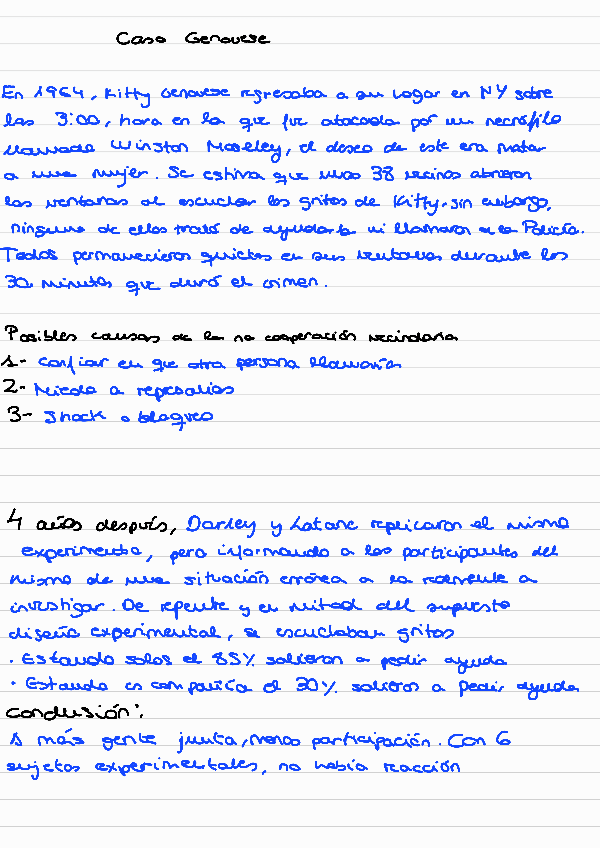 Caso Genovese
En 1964, Kitty Genovese regresaba a su hogar en NY sobre
las 3:00, hora en la que fue atacada por un necrófilo
llamado Winston Moseley, el deseo de este era matar
a una mujer. Se estima que unos 38 vecinos abrieron
las ventanas al escuchar los gritos de Kitty. sin embargo,
ninguno de ellos trató de ayudarla ni llamaron a la Policía.
Todos permanecieron quietos en sus ventanas durante los
30 minutos que duró el crimen.
Posibles causas de la no cooperación vecindaria
1- Confiar en que otra persona llamaría
2- Miedo a represalias
3- Shock o bloqueo
4 años después, Darley y Latane replicaron el mismo
experimento, pero informando a los participantes del
mismo de una situación errónea a la realmente a
investigar. De repente y en mitad del supuesto
diseño experimental, se escuchaban gritos
· Estando solos el 85% salieron a pedir ayuda
· Estando en compañía el 30% salieron a pedir ayuda
Conclusión:
A más gente junta, menos participación. Con 6
sujetos experimentales, no había reacción